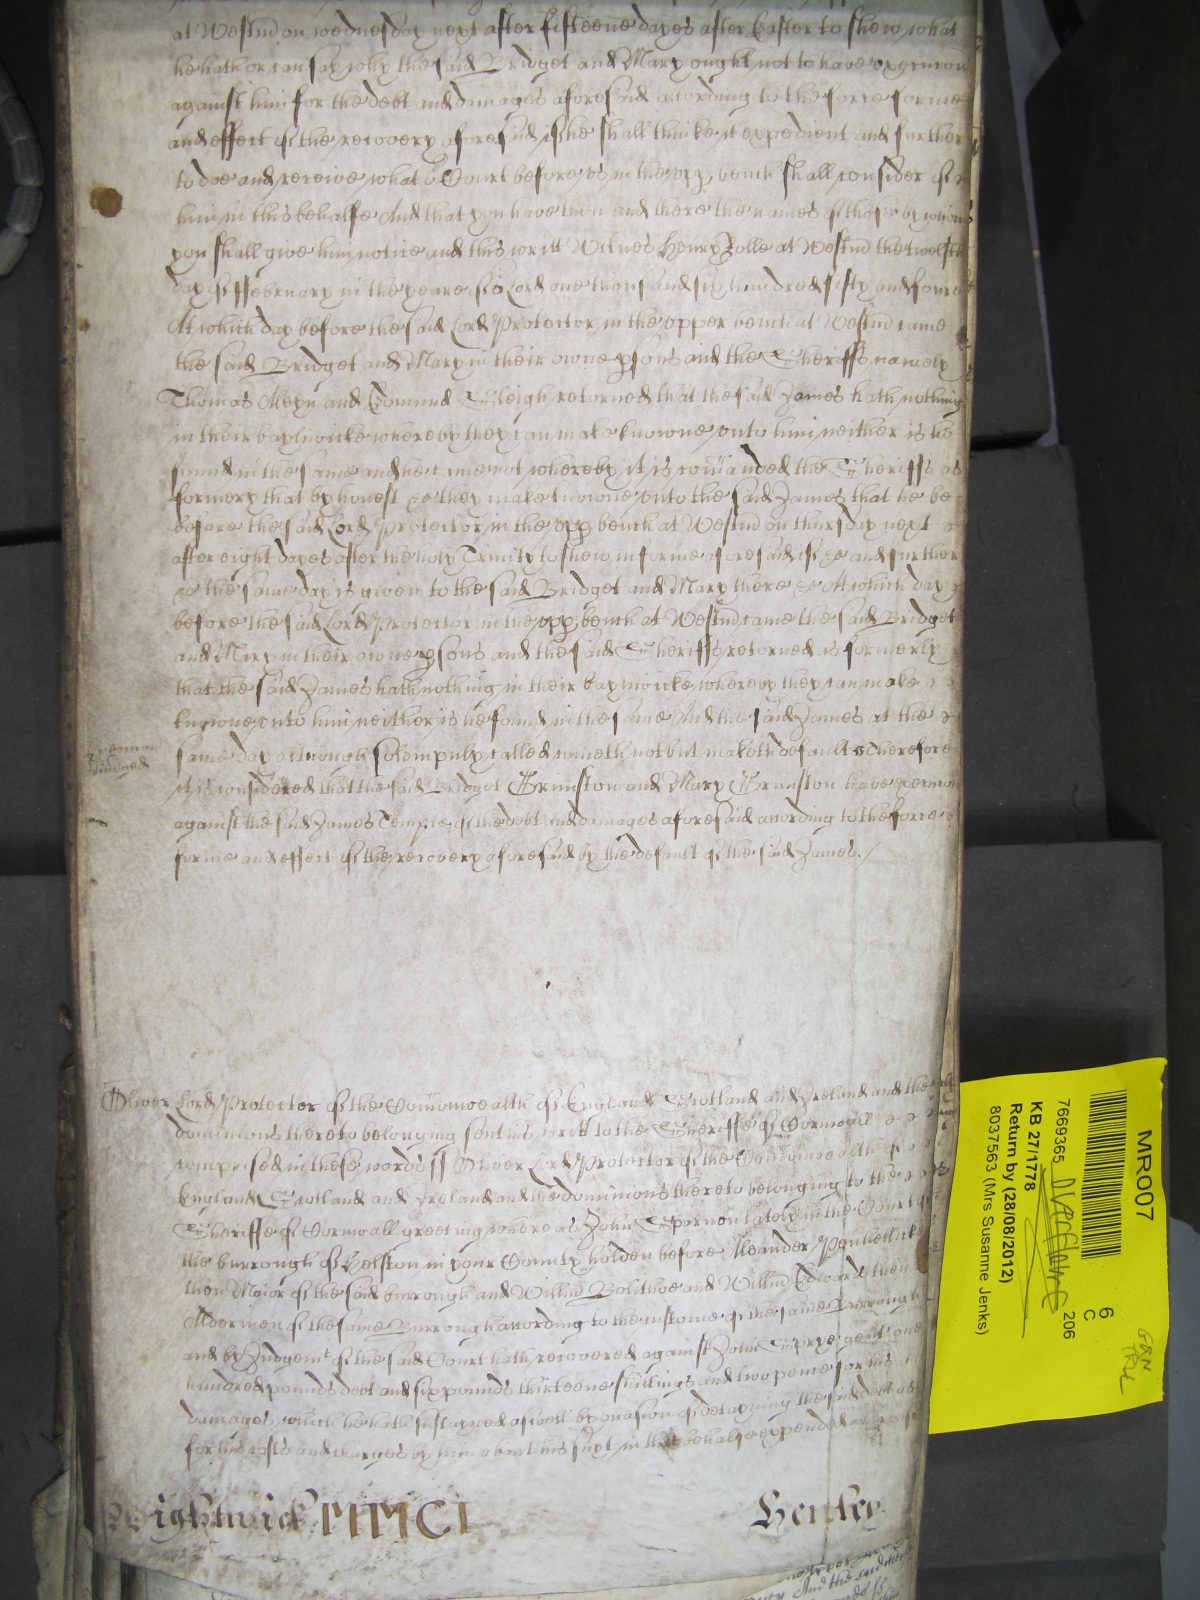 at Westm̃ on wednesday next after fifteene dayes after Easter to shew what
he hath or can say why the said Bridget and Mary ought not to have execucon
against him for the debt and damages aforesaid according to the force forme
and effect of the recovery aforesaid if he shall thinke it expedient and further
to doe and receive what oͬ Court before us in the upp bench shall consider of
him in this behalfe And that you have then and there the names of those by whom
you shall give him notice and this writt Witnes Henry Rolle at Westm̃ the twelfth
day of ffebruary in the yeare of oͬ Lord one thousand six hundred fifty and foure
At which day before the said Lord Protector in the upper bench at Westm̃ came
the said Bridget and Mary in their owne psons and the Sheriffs namely
Thomas Aleyn and Edmund Sleigh retorned that the said James hath nothing
in their bayliwicke whereby they can make knowne unto him neither is he
found in the same and he came not whereby it is com̃anded the Sheriffs as
formerly that by honest &c they make knowne unto the said James that he be
before the said Lord Protector in the upp bench at Westm̃ on thursday next
after eight dayes after the holy Trinity to shew in forme aforesaid if &c and further
&c the same day is given to the said Bridget and Mary there &c At which day
before the said Lord Protector in the upp bench at Westm̃ came the said Bridget
and Mary in their owne psons and the said Sheriffs retorned as formerly
that the said James hath nothing in their baylwicke whereby they can make
knowne unto him neither is he found in the same And the said James at the
same day although solempnly called cometh not but maketh default Therefore
it is considered that the said Bridget Grimston and Mary Grimston have execucon
against the said James Temple of the debt and damages aforesaid according to the force
forme and effect of the recovery aforesaid by the default of the said James.
Execucon
adiudged
Oliver Lord Protector of the Com̃onwealth of England Scotland and Ireland and the
dominions thereto belonging sent his writt to the Sheriffe of Cornwall
comprised in these words ss Oliver Lord Protector of the Com̃onwealth of
England Scotland and Ireland and the dominions thereto belonging to the
Sheriffe of Cornwall greeting whereas John Spernon lately in the Court of
the burrough of Helston in your County holden before Aleander Penhellicke
then Maior of the said burrough and Willm̃ Bolithoe and Willm̃ Edwards then
Aldermen of the same Burrough according to the custome of the same Burrough
and by Judgemͭ of the said Court hath recovered against John Sprye gent one
hundred pounds debt and six pounds thirteene shillings and two pence for his
damages which he hath sustayned aswell by occasion of detayning the said debt as
for his costs and charges by him about his suyt in that behalfe expended
Wightwick MMCI Henley
MR007
7669365
KB 27/1778
Return by (28/08/2012)
8037563 (Mrs Susanne Jenks)
6
C
206